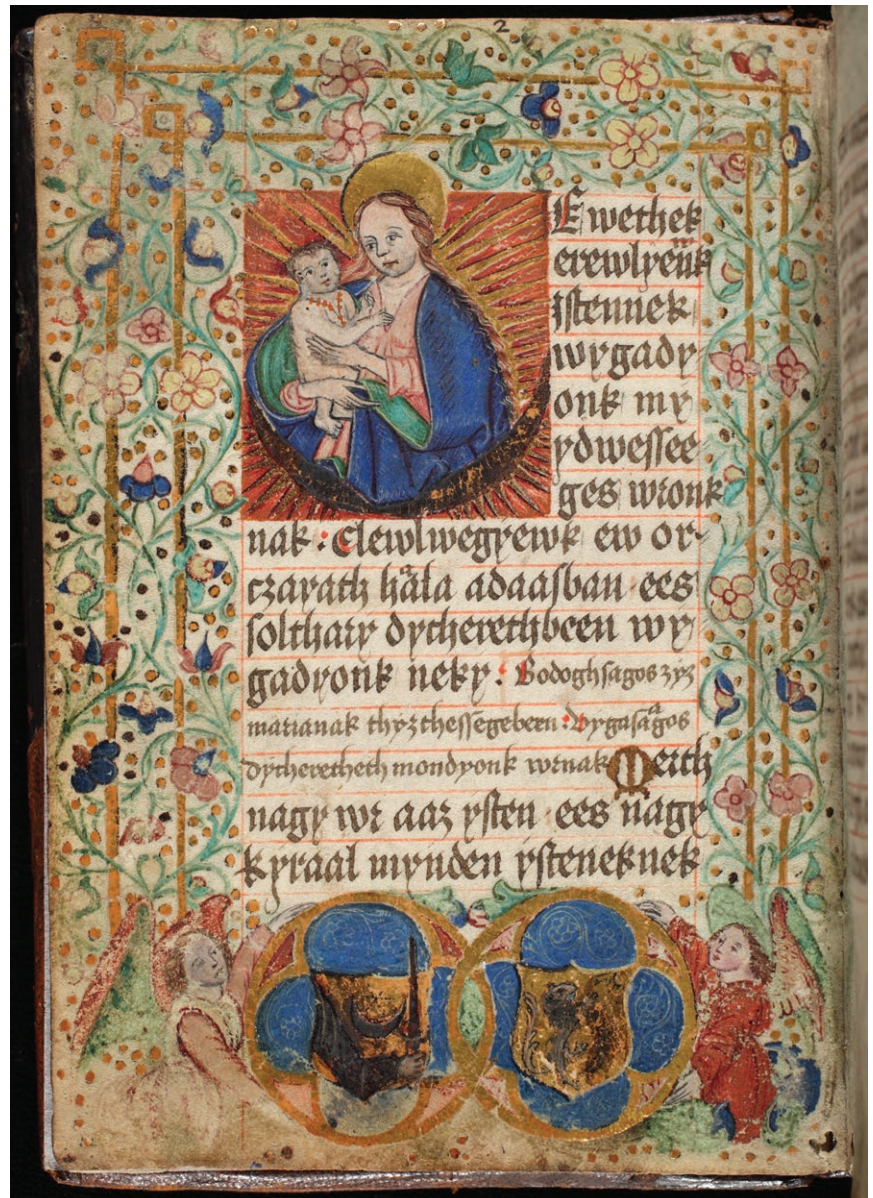 2
Ewethek
erewlyenk
ystennek
wygady
onk my
ydwessee
ges wronk
nak : Elewlwegyewk ew or-
czayath hala adaasban · ees
solthary dycherethbeen wy
gadyonk neky : Bodoghsagos zyz
marianak thyzthessegebeen : Vygasagos
dycheretheth mondyonk wrnak Merth
nagy wr aaz ysten · ees nagy
kyraal mynden ysteneknek